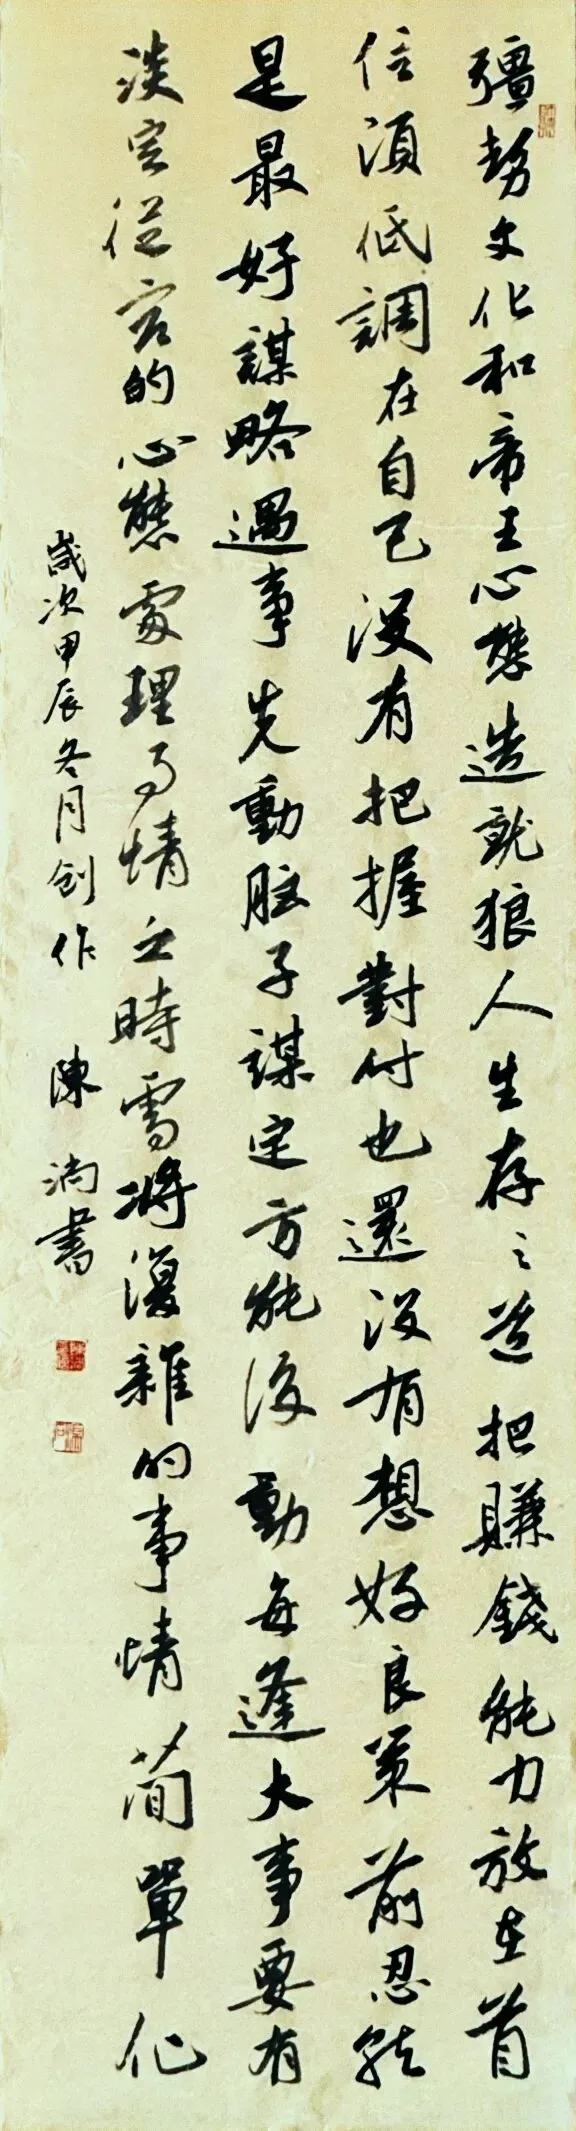 彊勢文化和帝王心態造就狼人生存之道把賺錢能力放在首
信須低調在自己沒有把握對付也還沒有想好良策前忍耐
是最好謀略遇事先動脑子謀定方能後動每逢大事要有
淡定從容的心態處理事情之時需將復雜的事情簡單化
歲次甲辰冬月創作 陳 書